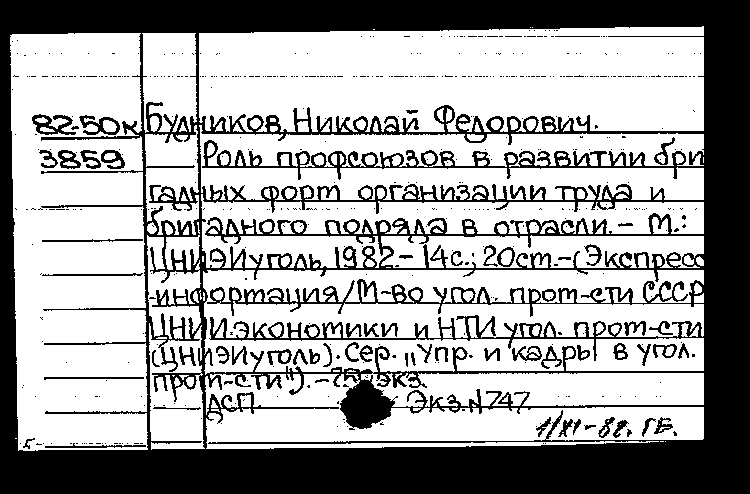 82-50к Будников, Николай Федорович.
3859 Роль профсоюзов в развитии бри
гадных форм организации труда и
бригадного подряда в отрасли. – М.:
ЦНИЭИуголь, 1982. – 14с.; 20см. – (Экспресс
-информация/М-во угол. пром-сти СССР
ЦНИИ экономики и НТИ угол. пром-сти
(ЦНИЭИуголь). Сер. „Упр. и кадры в угол.
пром-сти"). – 250 экз.
ДСП. Экз.N747.
1/XI-82. ГБ.